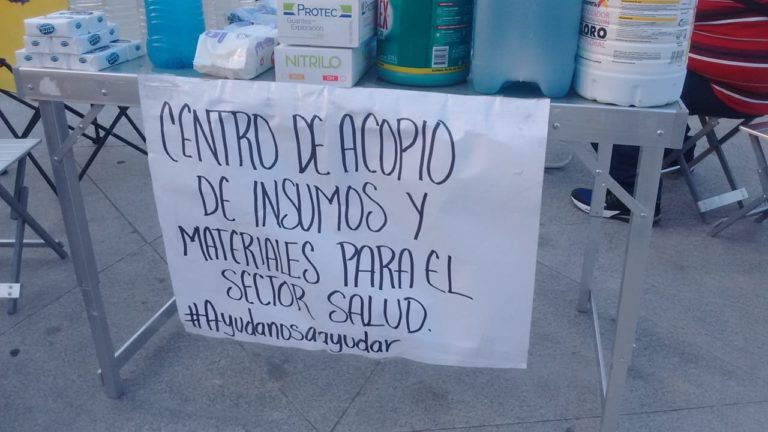 PROTEC
Guantes de
Exploración
NITRILO
CLORO
CENTRO DE ACOPIO
DE INSUMOS Y
MATERIALES PARA EL
SECTOR SALUD.
#Ayudanosaayudar